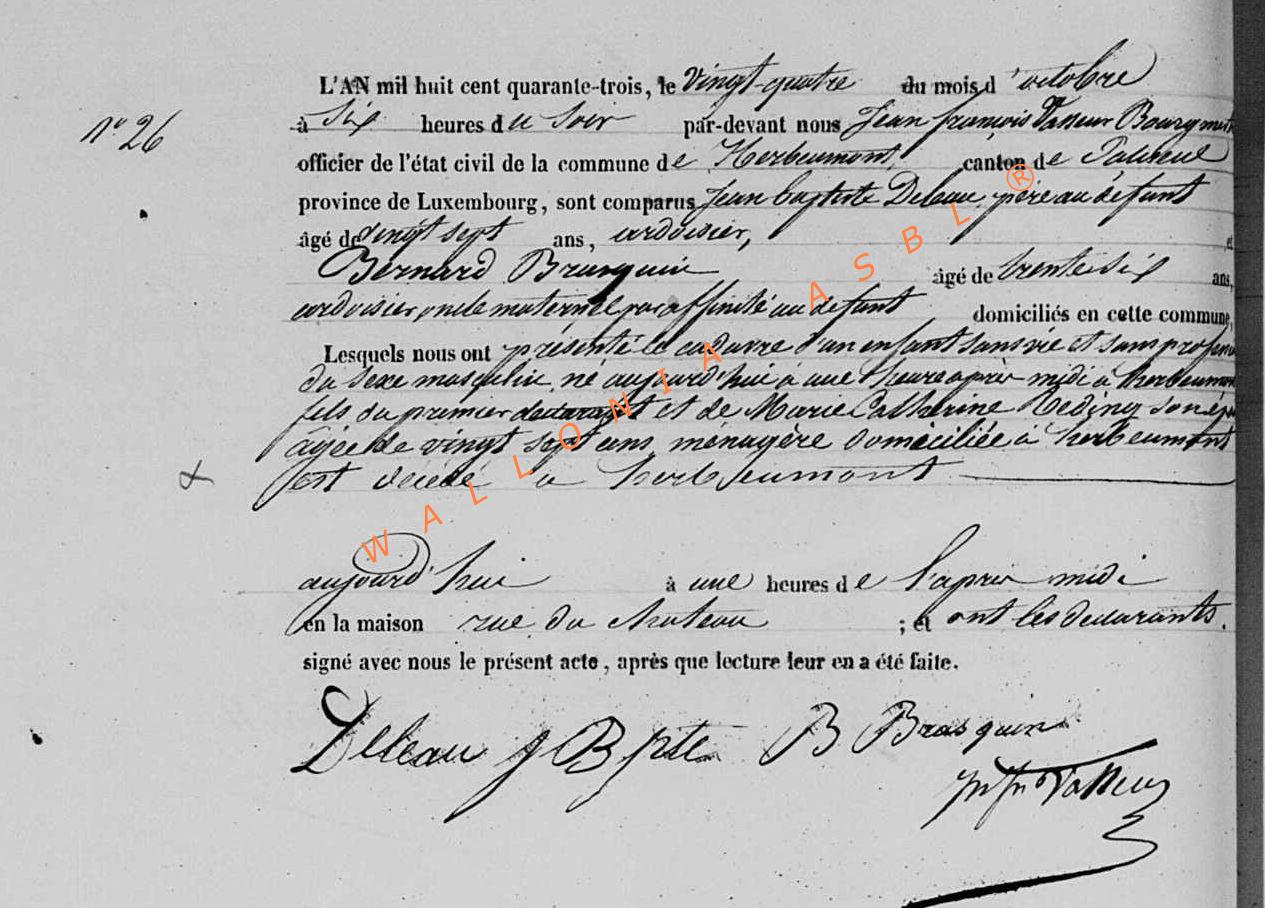 L'AN mil huit cent quarante-trois, le vingt-quatre du mois d'octobre
N° 26
à six heures du soir par-devant nous Jean françois Vasseur Bourgmest
officier de l'état civil de la commune de Herbeumont, canton de Paliseul
province de Luxembourg, sont comparus Jean baptiste Deleau père au défunt
âgé de vingt sept ans, ardoisier, et
Bernard Brasquin âgé de trente six ans,
ardoisier, oncle maternel par affinité au défunt domiciliés en cette commune,
Lesquels nous ont présenté le cadavre d'un enfant sans vie et sans
du sexe masculin, né aujourd'hui à une heure après midi à herbeumont
fils du premier déclarant et de Marie Catherine son
agée de vingt sept ans ménagère domiciliée à herbeumont
est décédé à herbeumont
aujourd'hui à une heures de l'après midi
en la maison rue du chateau ; et ont les déclarants.
signé avec nous le présent acte, après que lecture leur en a été faite.
Deleau J Bpte B Brasquin
Vasseur
WALLONIA ASBL ®